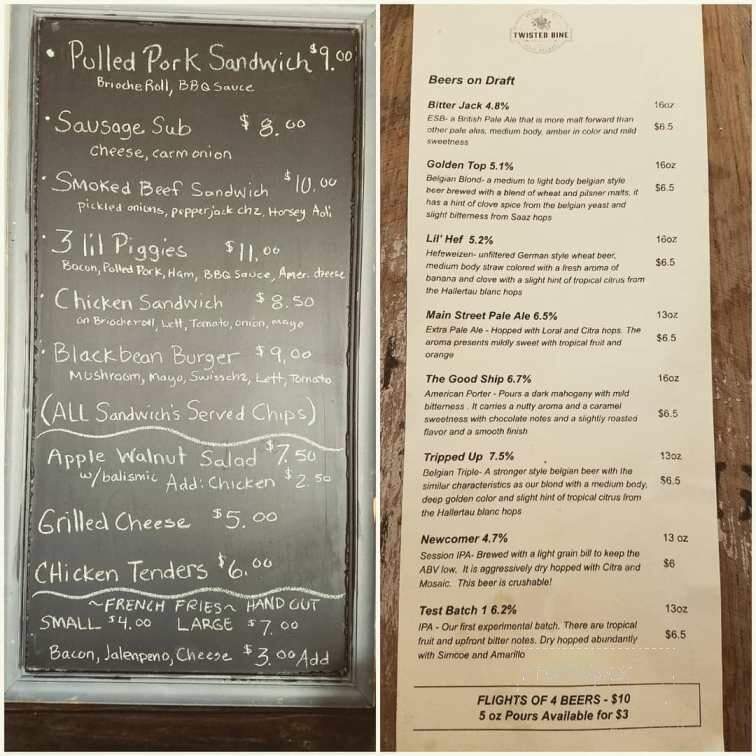 • Pulled Pork Sandwich $9.00
Brioche Roll, BBQ Sauce
• Sausage Sub $8.00
cheese, carm onion
• Smoked Beef Sandwich $10.00
pickled onions, pepperjack chz, Horsey Aoli
• 3 lil Piggies $11.00
Bacon, Pulled Pork, Ham, BBQ Sauce, Amer. cheese
• Chicken Sandwich $8.50
on Brioche roll, Lett, Tomato, onion, mayo
• Blackbean Burger $9.00
Mushroom, mayo, Swiss chz, Lett, Tomato
(ALL Sandwich's Served Chips)
Apple Walnut Salad $7.50
w/balismic Add: Chicken $2.50
Grilled Cheese $5.00
Chicken Tenders $6.00
~FRENCH FRIES~ HAND CUT
SMALL $4.00 LARGE $7.00
Bacon, Jalenpeno, Cheese $3.00 Add
TWISTED BINE
Beers on Draft
Bitter Jack 4.8% 16oz
ESB- a British Pale Ale that is more malt forward than
other pale ales, medium body, amber in color and mild $6.5
sweetness
Golden Top 5.1% 16oz
Belgian Blond- a medium to light body belgian style
beer brewed with a blend of wheat and pilsner malts, it $6.5
has a hint of clove spice from the belgian yeast and
slight bitterness from Saaz hops
Lil' Hef 5.2% 16oz
Hefeweizen- unfiltered German style wheat beer,
medium body straw colored with a fresh aroma of $6.5
banana and clove with a slight hint of tropical citrus from
the Hallertau blanc hops
Main Street Pale Ale 6.5% 13oz
Extra Pale Ale - Hopped with Loral and Citra hops. The
aroma presents mildly sweet with tropical fruit and $6.5
orange
The Good Ship 6.7% 16oz
American Porter - Pours a dark mahogany with mild
bitterness . It carries a nutty aroma and a caramel
sweetness with chocolate notes and a slightly roasted $6.5
flavor and a smooth finish
Tripped Up 7.5% 13oz
Belgian Triple- A stronger style belgian beer with the
similar characteristics as our blond with a medium body, $6.5
deep golden color and slight hint of tropical citrus from
the Hallertau blanc hops
Newcomer 4.7% 13 oz
Session IPA- Brewed with a light grain bill to keep the
ABV low. It is aggressively dry hopped with Citra and $6
Mosaic. This beer is crushable!
Test Batch 1 6.2% 13oz
IPA - Our first experimental batch. There are tropical
fruit and upfront bitter notes. Dry hopped abundantly $6.5
with Simcoe and Amarillo
FLIGHTS OF 4 BEERS - $10
5 oz Pours Available for $3